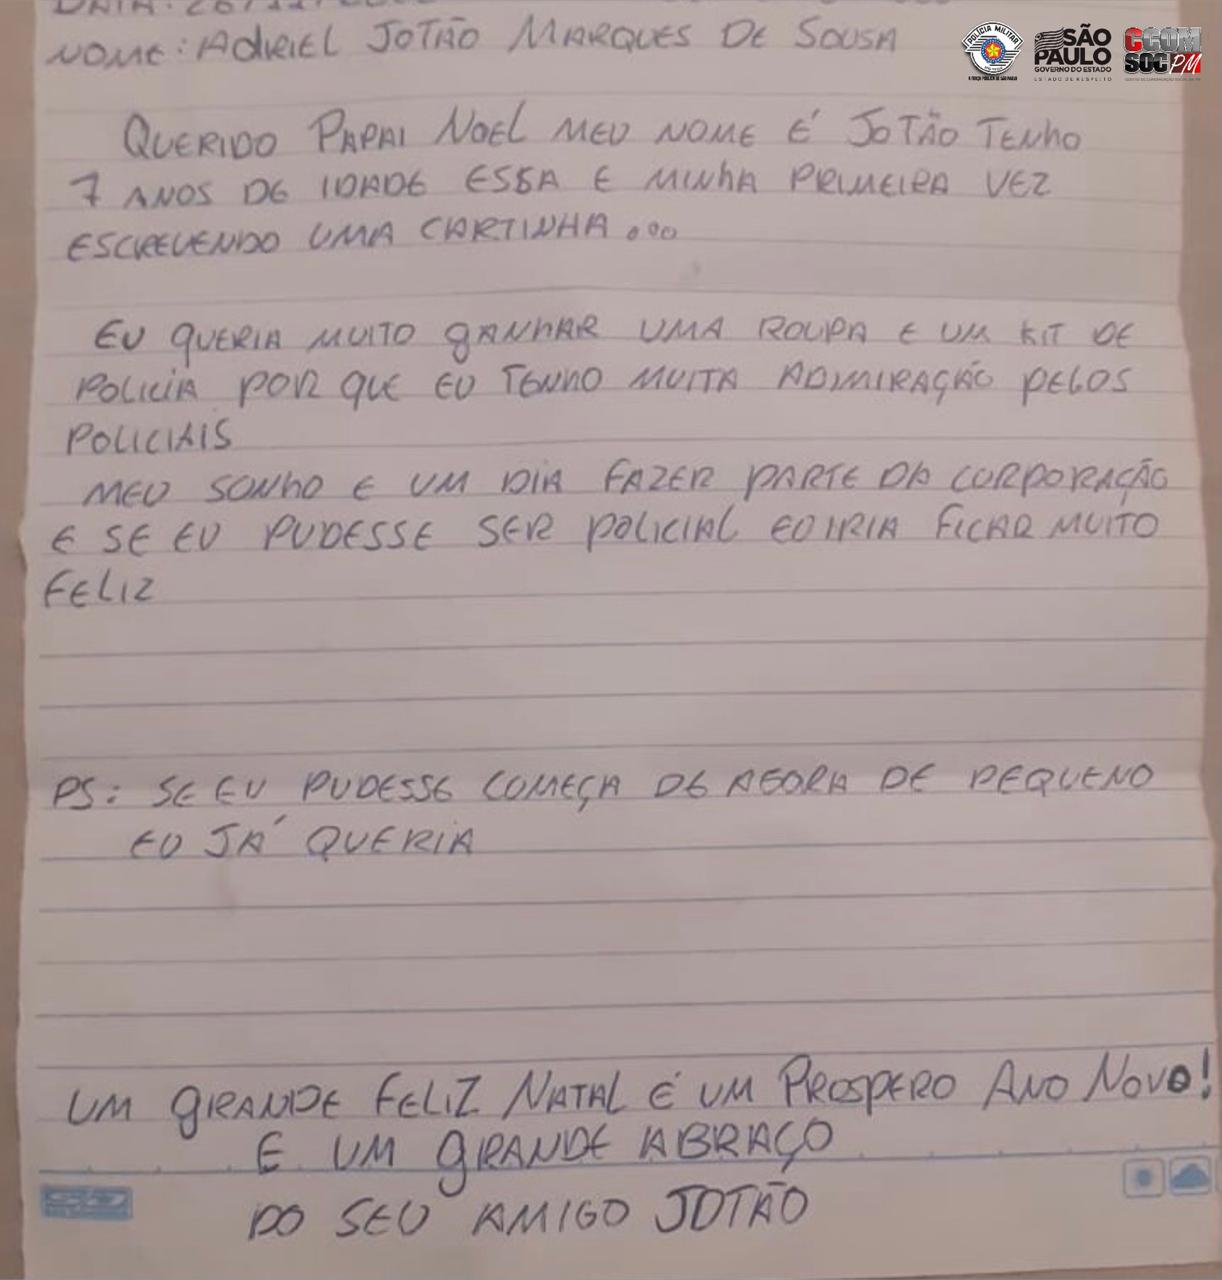 NOME: ADRIEL JOTÃO MARQUES DE SOUSA
POLÍCIA MILITAR
SÃO PAULO
GOVERNO DO ESTADO
CCOM
SOC PM
QUERIDO PAPAI NOEL MEU NOME É JOTÃO TENHO
7 ANOS DE IDADE ESSA E MINHA PRIMEIRA VEZ
ESCREVENDO UMA CARTINHA...
EU QUERIA MUITO GANHAR UMA ROUPA E UM KIT DE
POLICIA POR QUE EU TENHO MUITA ADMIRAÇÃO PELOS
POLICIAIS
MEU SONHO E UM DIA FAZER PARTE DA CORPORAÇÃO
E SE EU PUDESSE SER POLICIAL EU IRIA FICAR MUITO
FELIZ
PS: SE EU PUDESSE COMEÇA DE AGORA DE PEQUENO
EU JÁ QUERIA
UM GRANDE FELIZ NATAL É UM PROSPERO ANO NOVO!
E UM GRANDE ABRAÇO
DO SEU AMIGO JOTÃO